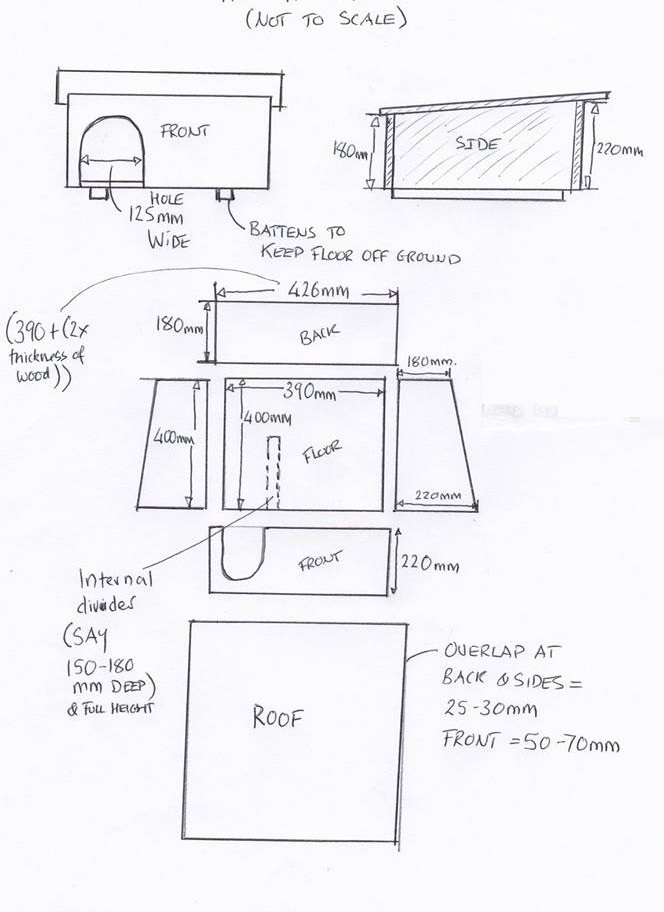 (NOT TO SCALE)
FRONT
HOLE
125mm
WIDE
BATTENS TO
KEEP FLOOR OFF GROUND
180mm
SIDE
220mm
(390+(2x
thickness of
wood))
426mm
180mm
BACK
390mm
400mm
FLOOR
400mm
180mm.
220mm
FRONT
220mm
Internal
divider
(SAY
150-180
mm DEEP)
& FULL HEIGHT
ROOF
OVERLAP AT
BACK & SIDES =
25-30mm
FRONT = 50-70mm